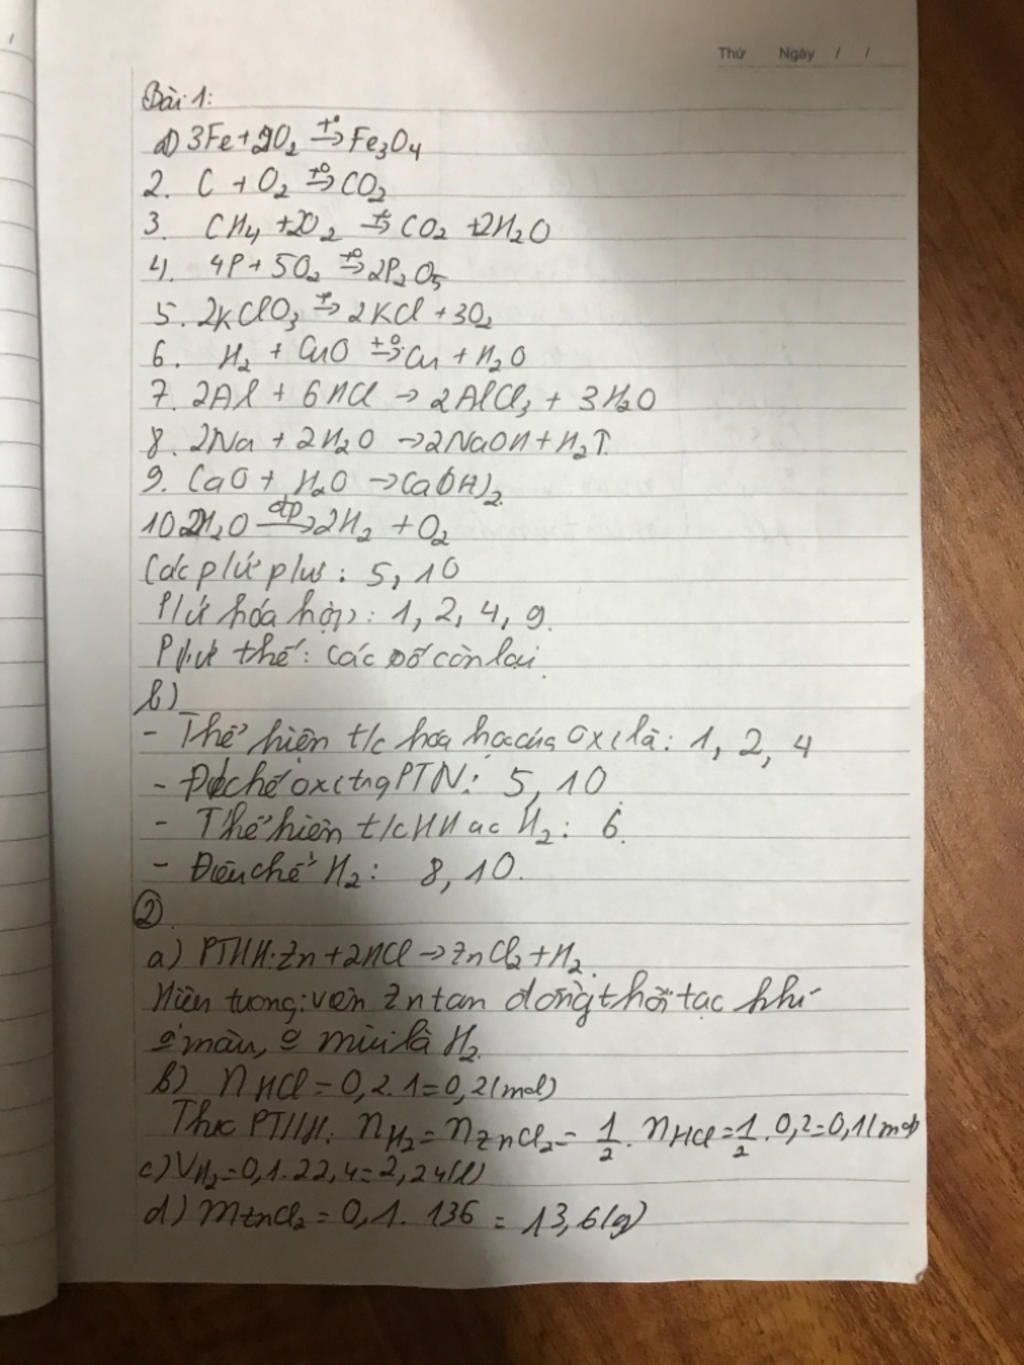 Thứ Ngày / /
Bài 1:
a) 3Fe + 2O₂ →(t°) Fe₃O₄
2. C + O₂ →(t°) CO₂
3. CH₄ + 2O₂ →(t°) CO₂ + 2H₂O
4. 4P + 5O₂ →(t°) 2P₂O₅
5. 2KClO₃ →(t°) 2KCl + 3O₂
6. H₂ + CuO →(t°) Cu + H₂O
7. 2Al + 6HCl → 2AlCl₃ + 3H₂O
8. 2Na + 2H₂O → 2NaOH + H₂↑.
9. CaO + H₂O → Ca(OH)₂
10 2H₂O →(đp) 2H₂ + O₂
Các p/ứ phư : 5, 10
P/ứ hóa hợp : 1, 2, 4, 9.
P/ứ thế : các số còn lại.
b)
- Thể hiện t/c hóa học của Oxi là : 1, 2, 4
- Đ/chế oxi tng PTN : 5, 10
- Thể hiện t/c HH ac H₂ : 6.
- Điều chế H₂ : 8, 10.
②.
a) PTHH: Zn + 2HCl → ZnCl₂ + H₂.
Hiên tương : viên Zn tan đồng thời tạc khí
màu, mùi là H₂.
b) nHCl = 0,2 . 1 = 0,2 (mol)
Thưc PTHH : nH₂ = nZnCl₂ = 1/2 . nHCl = 1/2 . 0,2 = 0,1 (mol)
c) VH₂ = 0,1 . 22,4 = 2,24 (l)
d) mZnCl₂ = 0,1 . 136 = 13,6 (g)